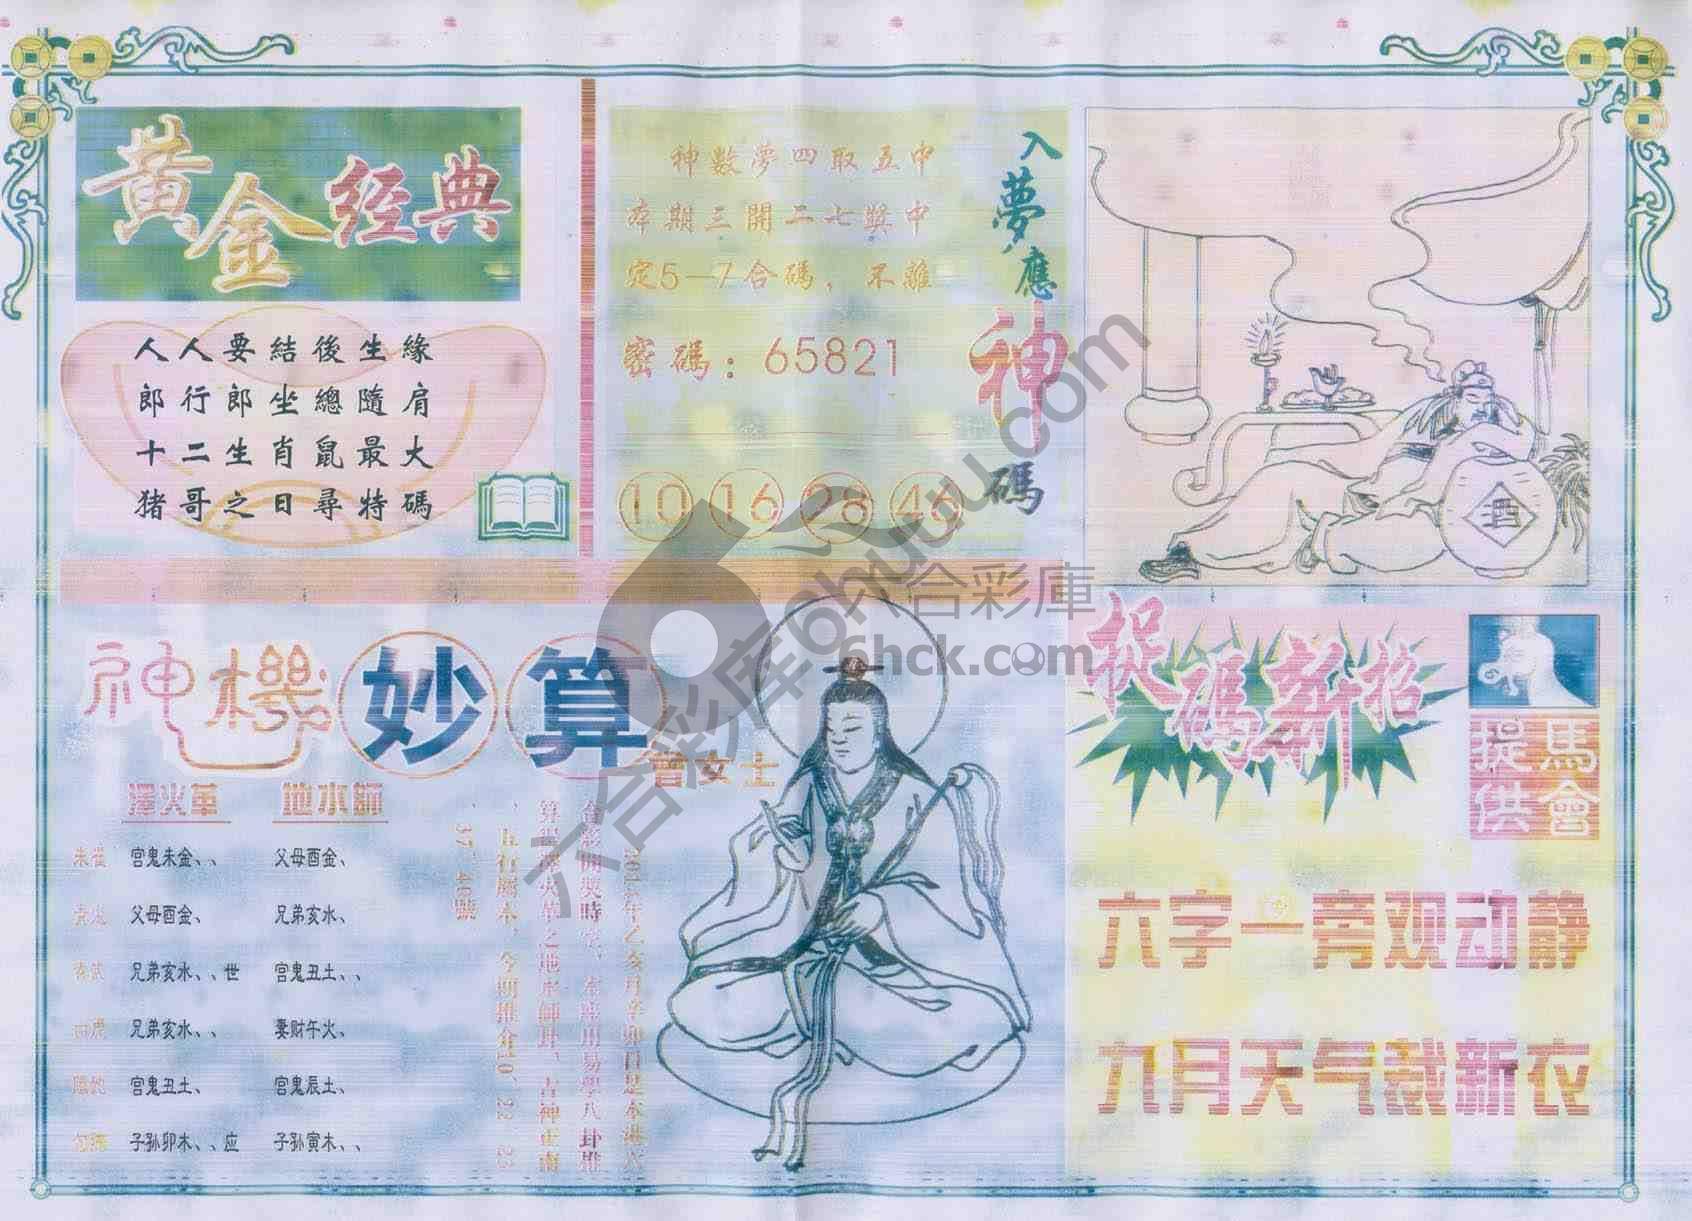 黃金經典
人人要結後生緣
郎行郎坐總隨肩
十二生肖鼠最大
猪哥之日尋特碼
神數夢四取五中
本期三開二七獎中
定5—7合碼，不離
密碼：65821
10 16 28 46
入夢應神碼
酒
神機妙算
曾女士
澤火革 地水師
朱雀 官鬼未金、、 父母酉金、
父母酉金、 兄弟亥水、
兄弟亥水、、世 官鬼丑土、、
白虎 兄弟亥水、、 妻财午火、
官鬼丑土、 官鬼辰土、
子孙卯木、、应 子孙寅木、、
年乙亥月辛卯日是本港六
合彩開獎時 用易學八卦推
算得澤火革之地水師卦，吉神正南
、五行屬木，今期推介10、22、25
、37、40號
捉碼新招
馬會提供
六字一旁观动静
九月天气裁新衣
六合彩库 6huuu.com
六合彩庫
6hck.com